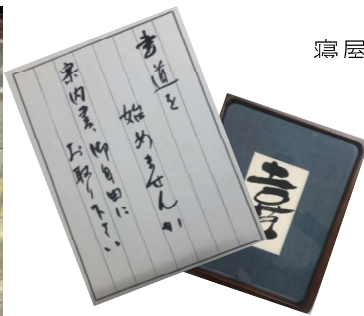 寝屋
書道を
始めませんか
案内書、御自由に
お取り下さい